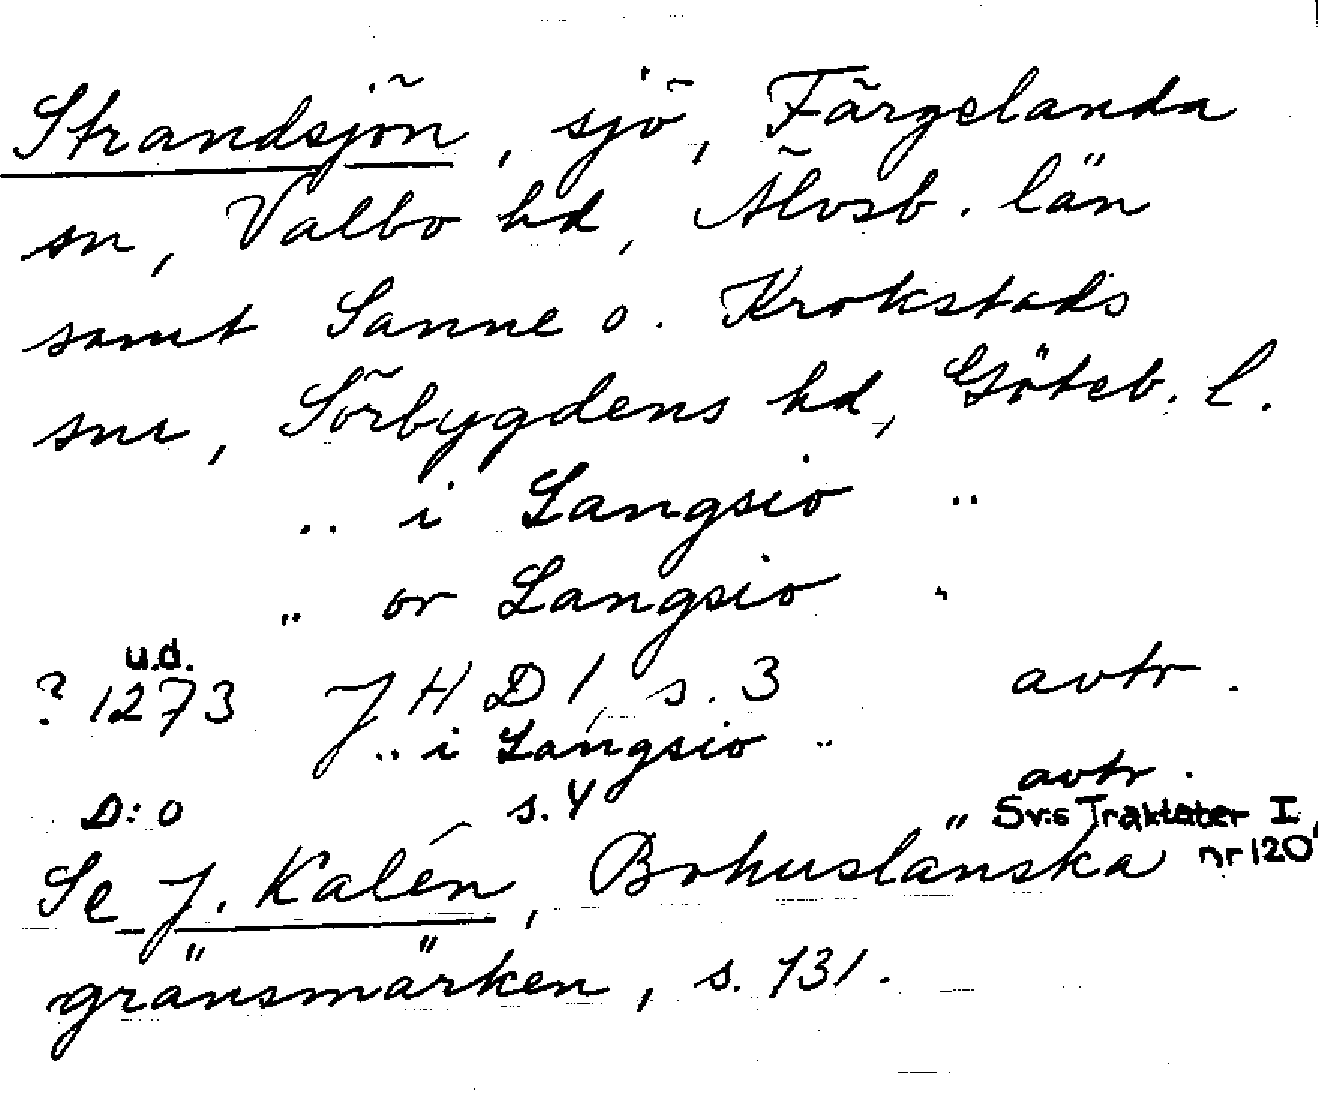 Strandsjön, sjö, Färgelanda
sn, Valbo hd, Älvsb. län
samt Sanne o. Krokstads
snr, Sörbygdens hd, Göteb. l.
.. i Langsio ..
.. or Langsio ..
u.d.
? 1273 JHD 1, s. 3 avtr.
.. i Langsio ..
avtr.
D:o s. 4 Sv:s Traktater I
nr 120
Se J. Kalén, Bohuslänska
gränsmärken, s. 131.